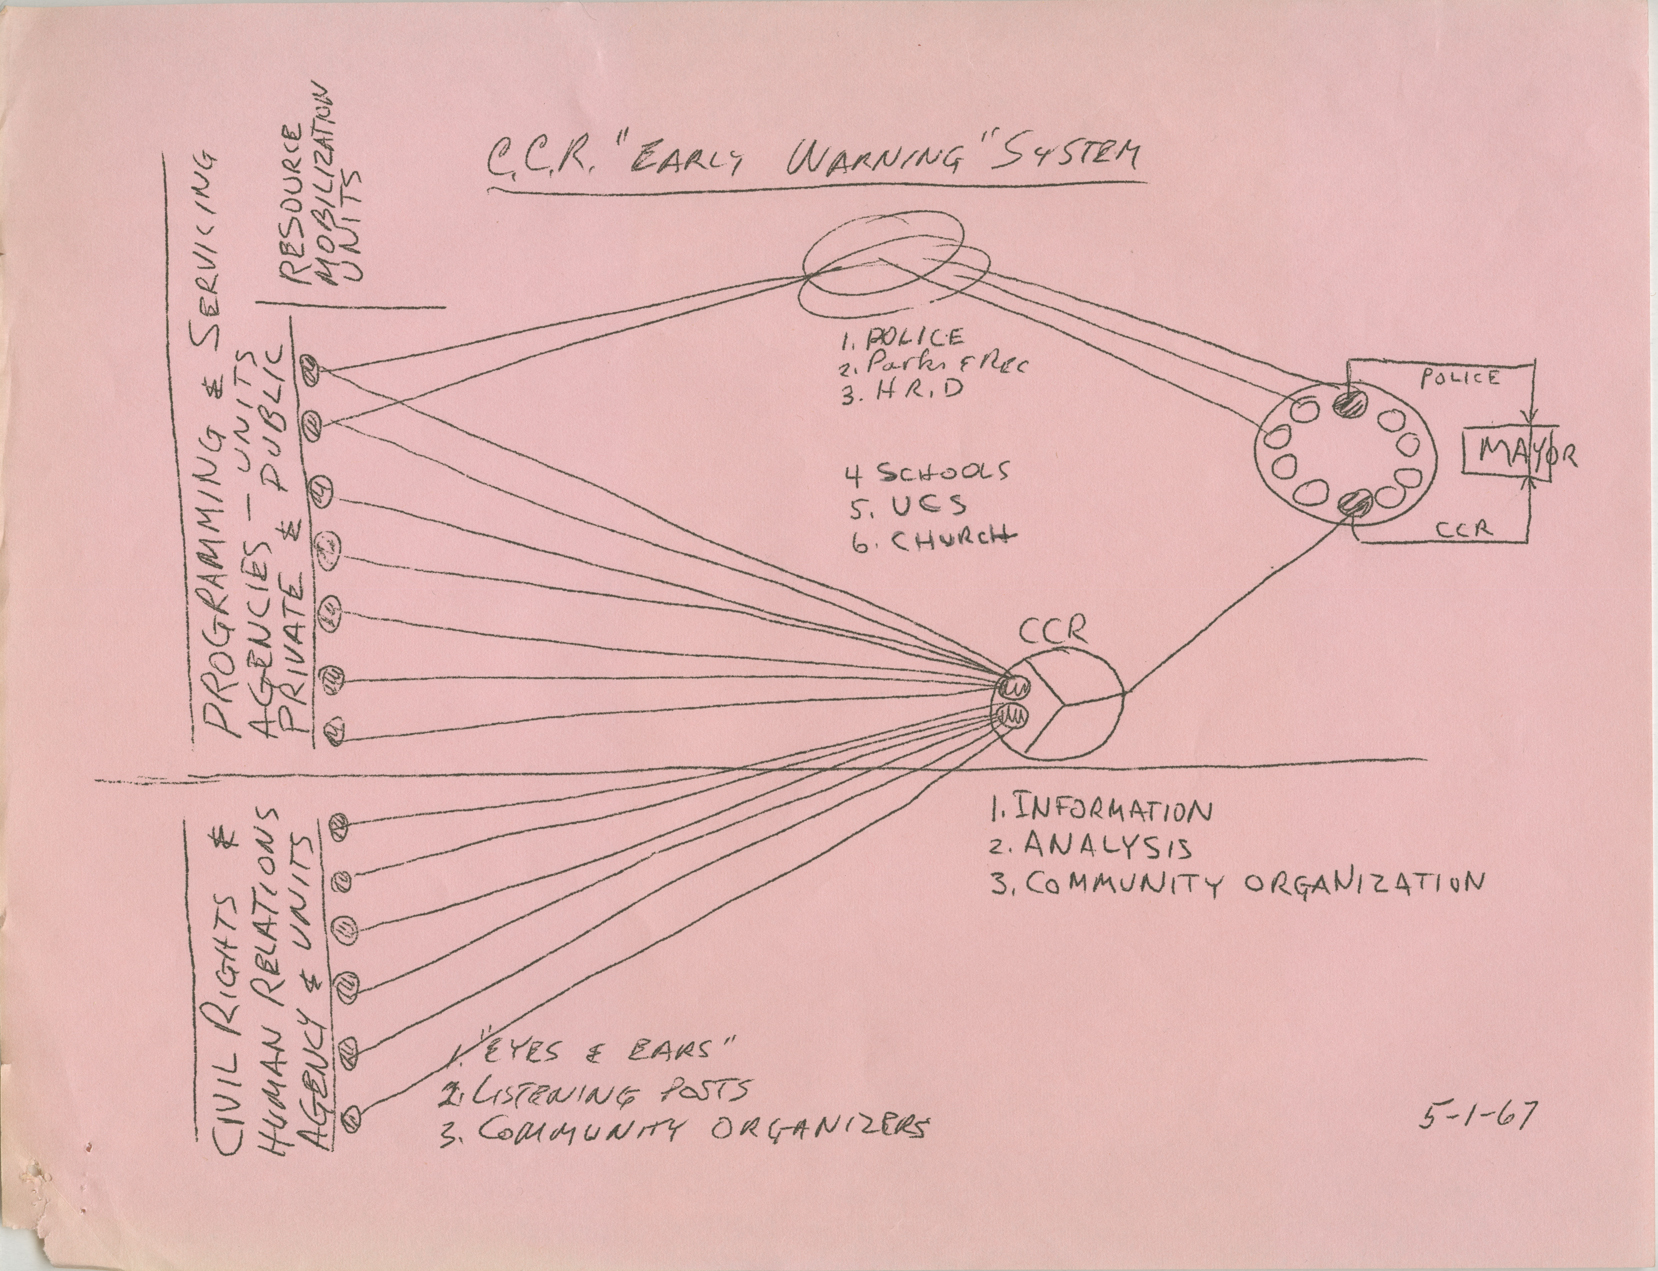 C.C.R. "EARLY WARNING" SYSTEM
RESOURCE
MOBILIZATION
UNITS
PROGRAMMING & SERVICING
AGENCIES - UNITS
PRIVATE & PUBLIC
1. POLICE
2. Parks & Rec
3. H.R.D
4 SCHOOLS
5. UCS
6. CHURCH
POLICE
MAYOR
CCR
CCR
1. INFORMATION
2. ANALYSIS
3. COMMUNITY ORGANIZATION
CIVIL RIGHTS &
HUMAN RELATIONS
AGENCY & UNITS
1. "EYES & EARS"
2. LISTENING POSTS
3. COMMUNITY ORGANIZERS
5-1-67